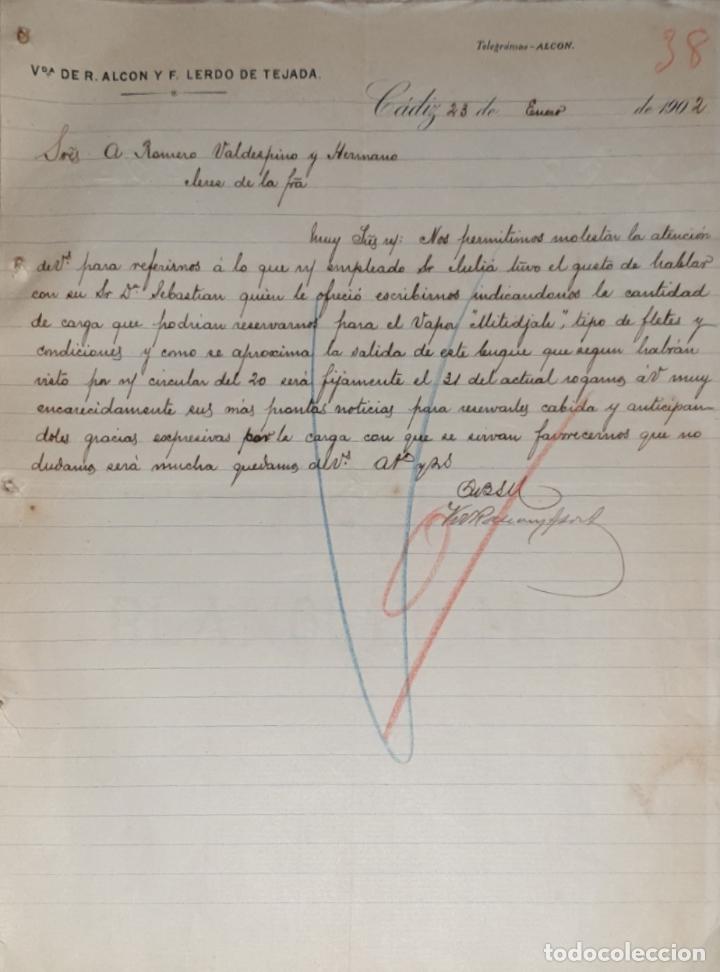 Telegramas-ALCON.
38
Vda DE R. ALCON Y F. LERDO DE TEJADA.
Cádiz 23 de Enero de 1902
Sres A. Romero Valdespino y Hermano
Jerez de la fra
Muy Sres n/: Nos permitimos molestar la atención
de Vs para referirnos á lo que n/ empleado Sr Juliá tuvo el gusto de hablar
con su Sr Dn Sebastian quien le ofreció escribirnos indicandonos la cantidad
de carga que podrian reservarnos para el Vapor "Mitidjah", tipo de fletes y
condiciones y como se aproxima la salida de este buque que segun habrán
visto por n/ circular del 20 será fijamente el 31 del actual rogamos á V muy
encarecidamente sus más prontas noticias para reservarles cabida y anticipan-
doles gracias expresivas por la carga con que se sirvan favorecernos que no
dudamos será mucha quedamos de Vs Atos y SS
QBSM
todocoleccion.net